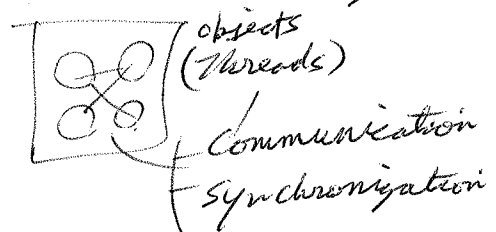 objects
(Threads)
Communication
Synchronization